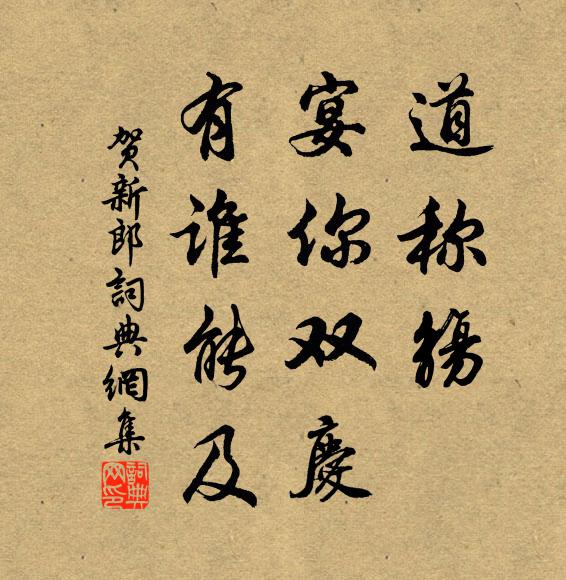 道称觞
宴你双慶
有谁能及
贺新郎詞典網集
詞典网印